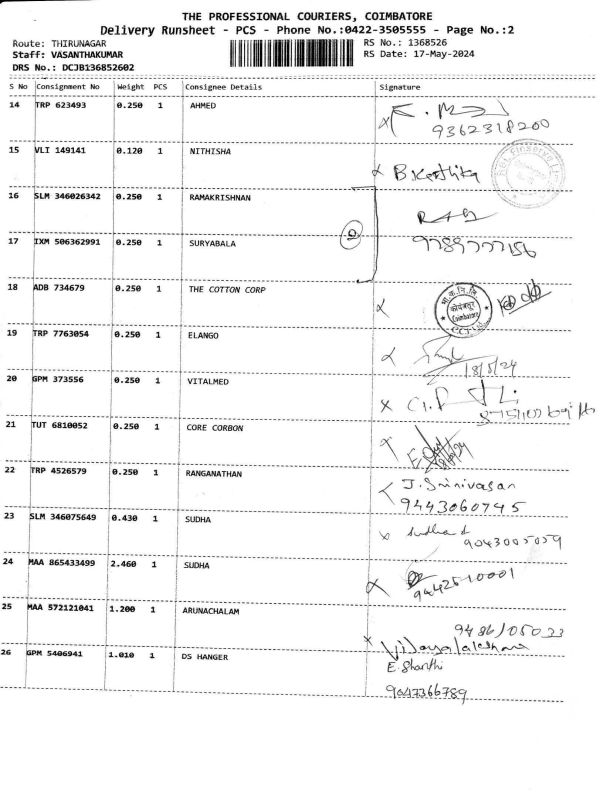 THE PROFESSIONAL COURIERS, COIMBATORE
Delivery Runsheet - PCS - Phone No.:0422-3505555 - Page No.:2
Route: THIRUNAGAR
RS No.: 1368526
Staff: VASANTHAKUMAR
RS Date: 17-May-2024
DRS No.: DCJB136852602
S No Consignment No Weight PCS Consignee Details Signature
14 TRP 623493 0.250 1 AHMED
9362318200
15 VLI 149141 0.120 1 NITHISHA
B. Karthika
16 SLM 346026342 0.250 1 RAMAKRISHNAN
17 IXM 506362991 0.250 1 SURYABALA
9789777156
18 ADB 734679 0.250 1 THE COTTON CORP
Coimbatore
19 TRP 7763054 0.250 1 ELANGO
18/5/24
20 GPM 373556 0.250 1 VITALMED
21 TUT 6810052 0.250 1 CORE CORBON
22 TRP 4526579 0.250 1 RANGANATHAN
J. Srinivasan
9443060745
23 SLM 346075649 0.430 1 SUDHA
Sudha
24 MAA 865433499 2.460 1 SUDHA
9442510001
25 MAA 572121041 1.200 1 ARUNACHALAM
26 GPM 5406941 1.010 1 DS HANGER
E. Shanthi
9047366789